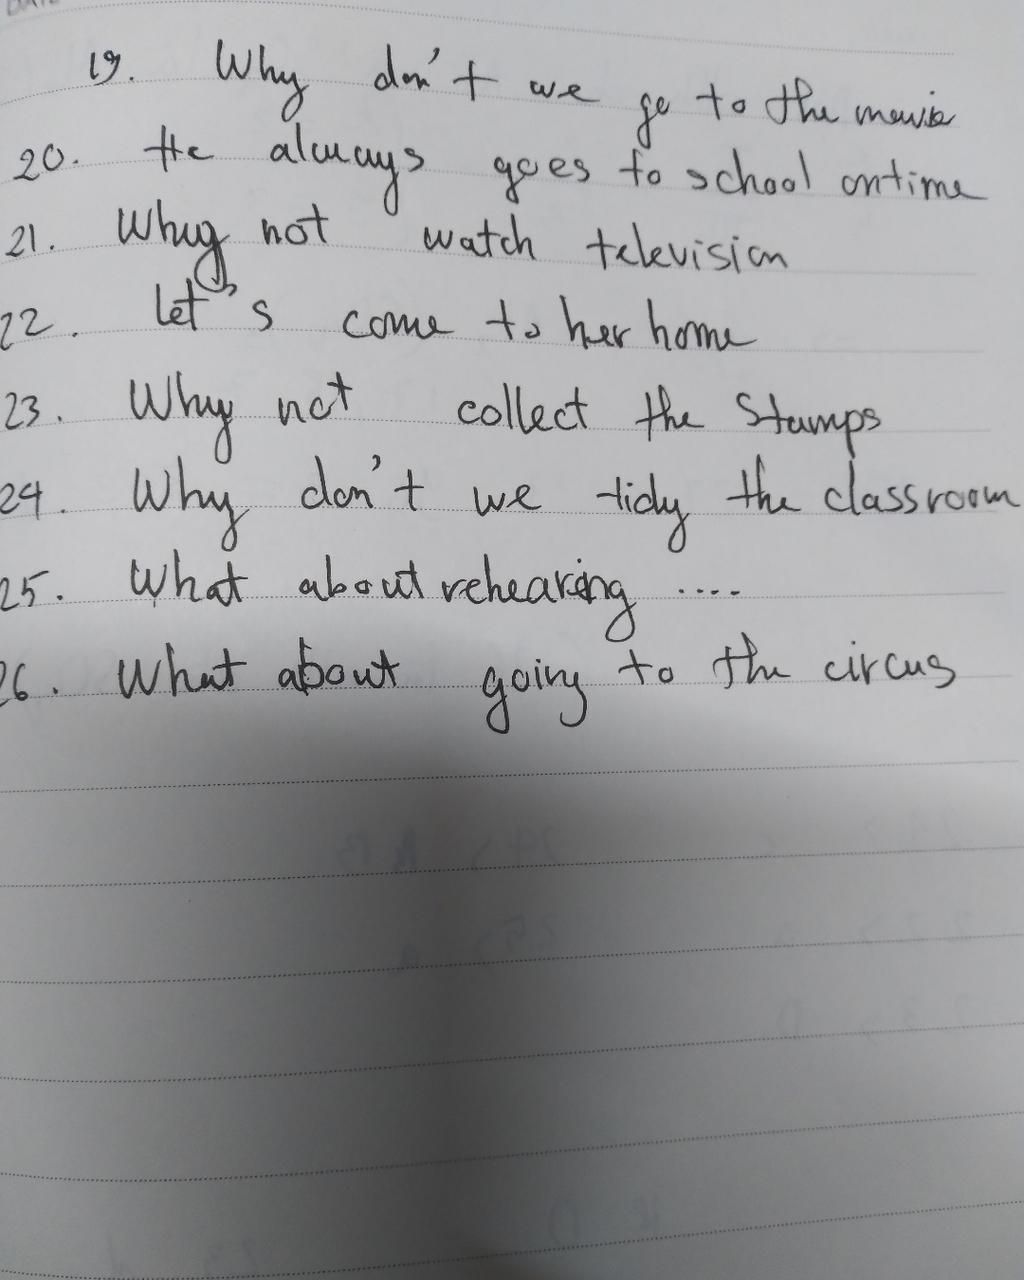 19. Why don't we go to the movie
20. He always goes to school ontime
21. Why not watch television
22. Let's come to her home
23. Why not collect the Stamps
24. Why don't we tidy the classroom
25. What about rehearing ....
26. What about going to the circus